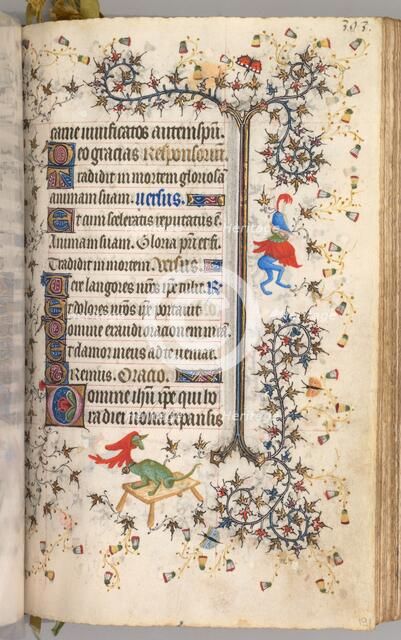 303.
carne viuificatos autem spu.
Deo gracias Responsorium.
Tradidit in mortem gloriosa
animam suam. Versus.
Et cum sceleratis reputatus e.
Animam suam. Gloria pri et fi.
Tradidit in mortem. Versus.
Vere langores nros ipe tulit. R.
Et dolores nros ipe portauit
Domine exaudi oracionem mea.
Et clamor meus ad te ueniat.
Oremus. Oracio.
Domine ihu xpe qui ho
ra diei nona expansis
Heritage
191